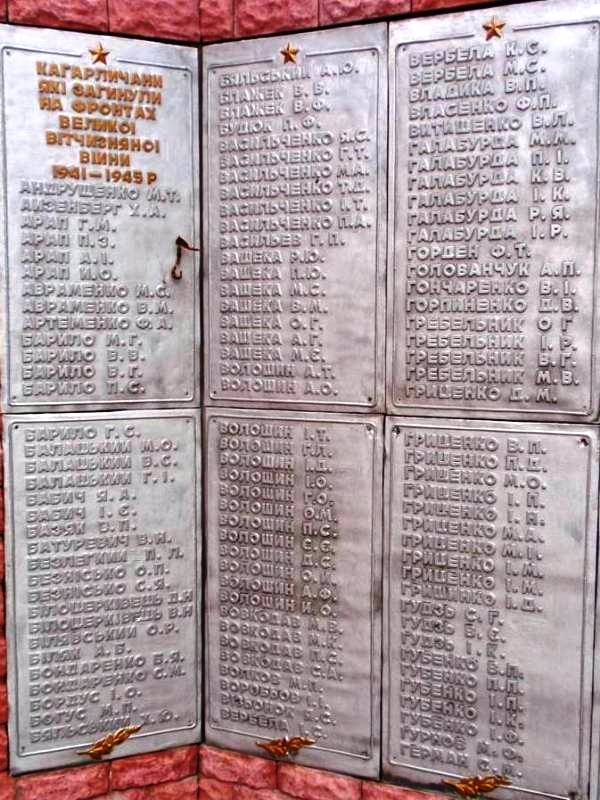 КАГАРЛИЧАНИ
ЯКІ ЗАГИНУЛИ
НА ФРОНТАХ
ВЕЛИКОЇ
ВІТЧИЗНЯНОЇ
ВІЙНИ
1941–1945 Р
АНДРУЩЕНКО М.Т.
АИЗЕНБЕРГ Х.А.
АРАП Г.М.
АРАП П.З.
АРАП А.І.
АРАП И.О.
АВРАМЕНКО М.С.
АВРАМЕНКО В.М.
АРТЕМЕНКО Ф.А.
БАРИЛО М.Г.
БАРИЛО В.В.
БАРИЛО В.Г.
БАРИЛО П.С.
БАРИЛО Г.С.
БАЛАЦЬКИЙ М.О.
БАЛАЦЬКИЙ В.С.
БАЛАЦЬКИЙ Г.І.
БАБИЧ Я.А.
БАБИЧ І.Є.
БАЗЯК В.П.
БАТУРЕВИЧ В.Н.
БЕЗЛЕГКИЙ П.Л.
БЕЗНІСЬКО О.П.
БЕЗНІСЬКО С.Я.
БІЛОЦЕРКІВЕЦЬ Д.Н
БІЛОЦЕРКІВЕЦЬ В.Н
БІЛЯВСЬКИЙ О.Р.
БІЛЯК А.Б.
БОНДАРЕНКО Б.Я.
БОНДАРЕНКО С.М.
БОРДУС І.О.
БОГУС М.П.
БЯЛЬСЬКИЙ Х.Ю.
БЯЛЬСЬКИЙ А.Ю.
БЛАЖЕК В.В.
БЛАЖЕК В.Ф.
БУДЮК П.Ф.
ВАСИЛЬЧЕНКО Я.С.
ВАСИЛЬЧЕНКО Г.Т.
ВАСИЛЬЧЕНКО М.А.
ВАСИЛЬЧЕНКО Т.Д.
ВАСИЛЬЧЕНКО І.Т.
ВАСИЛЬЧЕНКО П.А.
ВАСИЛЬЕВ Г.П.
ВАЩЕКА Р.Ю.
ВАЩЕКА П.Ю.
ВАЩЕКА М.С.
ВАЩЕКА В.М.
ВАЩЕКА О.Г.
ВАЩЕКА А.Г.
ВАЩЕКА М.Є.
ВОЛОШИН А.Т.
ВОЛОШИН А.О.
ВОЛОШИН І.Т.
ВОЛОШИН Г.Л.
ВОЛОШИН І.Д.
ВОЛОШИН І.О.
ВОЛОШИН Г.О.
ВОЛОШИН О.М.
ВОЛОШИН П.С.
ВОЛОШИН Є.Є.
ВОЛОШИН Д.С.
ВОЛОШИН О.И.
ВОЛОШИН А.Ф.
ВОЛОШИН И.О.
ВОВКОДАВ М.В.
ВОВКОДАВ М.К.
ВОВКОДАВ П.С.
ВОВКОДАВ С.А.
ВОЛКОВ М.П.
ВОРОБЬОВ І.І.
В.С.
ВЕРБЕЛА
ВЕРБЕЛА К.С.
ВЕРБЕЛА М.С.
ВЛАДИКА В.П.
ВЛАСЕНКО Ф.П.
ВИТИЩЕНКО В.Л.
ГАЛАБУРДА М.М.
ГАЛАБУРДА П.І.
ГАЛАБУРДА К.В.
ГАЛАБУРДА І.К.
ГАЛАБУРДА Р.Я.
ГАЛАБУРДА І.Р.
ГОРДЕН Ф.Т.
ГОЛОВАНЧУК А.П.
ГОНЧАРЕНКО В.І.
ГОРПИНЕНКО Д.В.
ГРЕБЕЛЬНИК О Г
ГРЕБЕЛЬНИК І.Р.
ГРЕБЕЛЬНИК В.Г.
ГРЕБЕЛЬНИК М.В.
ГРИЦЕНКО Д.М.
ГРИЦЕНКО В.П.
ГРИЦЕНКО П.Д.
ГРИЦЕНКО М.О.
ГРИЦЕНКО І.П.
ГРИЦЕНКО І.Н.
ГРИЦЕНКО М.А.
ГРИЦЕНКО М.І.
ГРИЦЕНКО І.М.
ГРИЦЕНКО І.М.
ГРИЩИНКО І.Д.
ГУДЗЬ С.Г.
ГУДЗЬ В.Є.
ГУДЗЬ І.К.
ГУБЕНКО В.П.
ГУБЕНКО П.П.
ГУБЕНКО І.П.
ГУБЕНКО І.К.
ГУБЕНКО І.Ф.
ГУРНОВ М.Ф.
ГЕРМАН